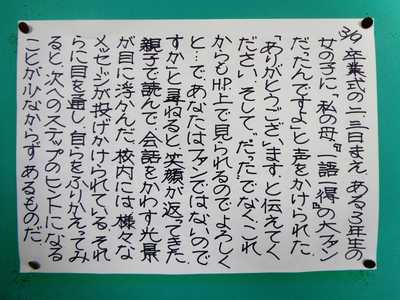 3/9 卒業式の一、二日まえ、ある3年生の
女の子に、「私の母、『一語一得』の大ファン
だったんですよ」と声をかけられた。
「ありがとうございます、と伝えてく
ださい。そして、“だった”でなく、これ
からもH.P.上で見られるのでよろしく
と…で、あなたはファンではないので
すか」と尋ねると、笑顔が返ってきた。
親子で読んで、会話をかわす光景
が目に浮かんだ。校内には様々な
メッセージが投げかけられている。それ
らに目を通し、自らをふりかえってみ
ると、次へのステップのヒントになる
ことが少なからずあるものだ。